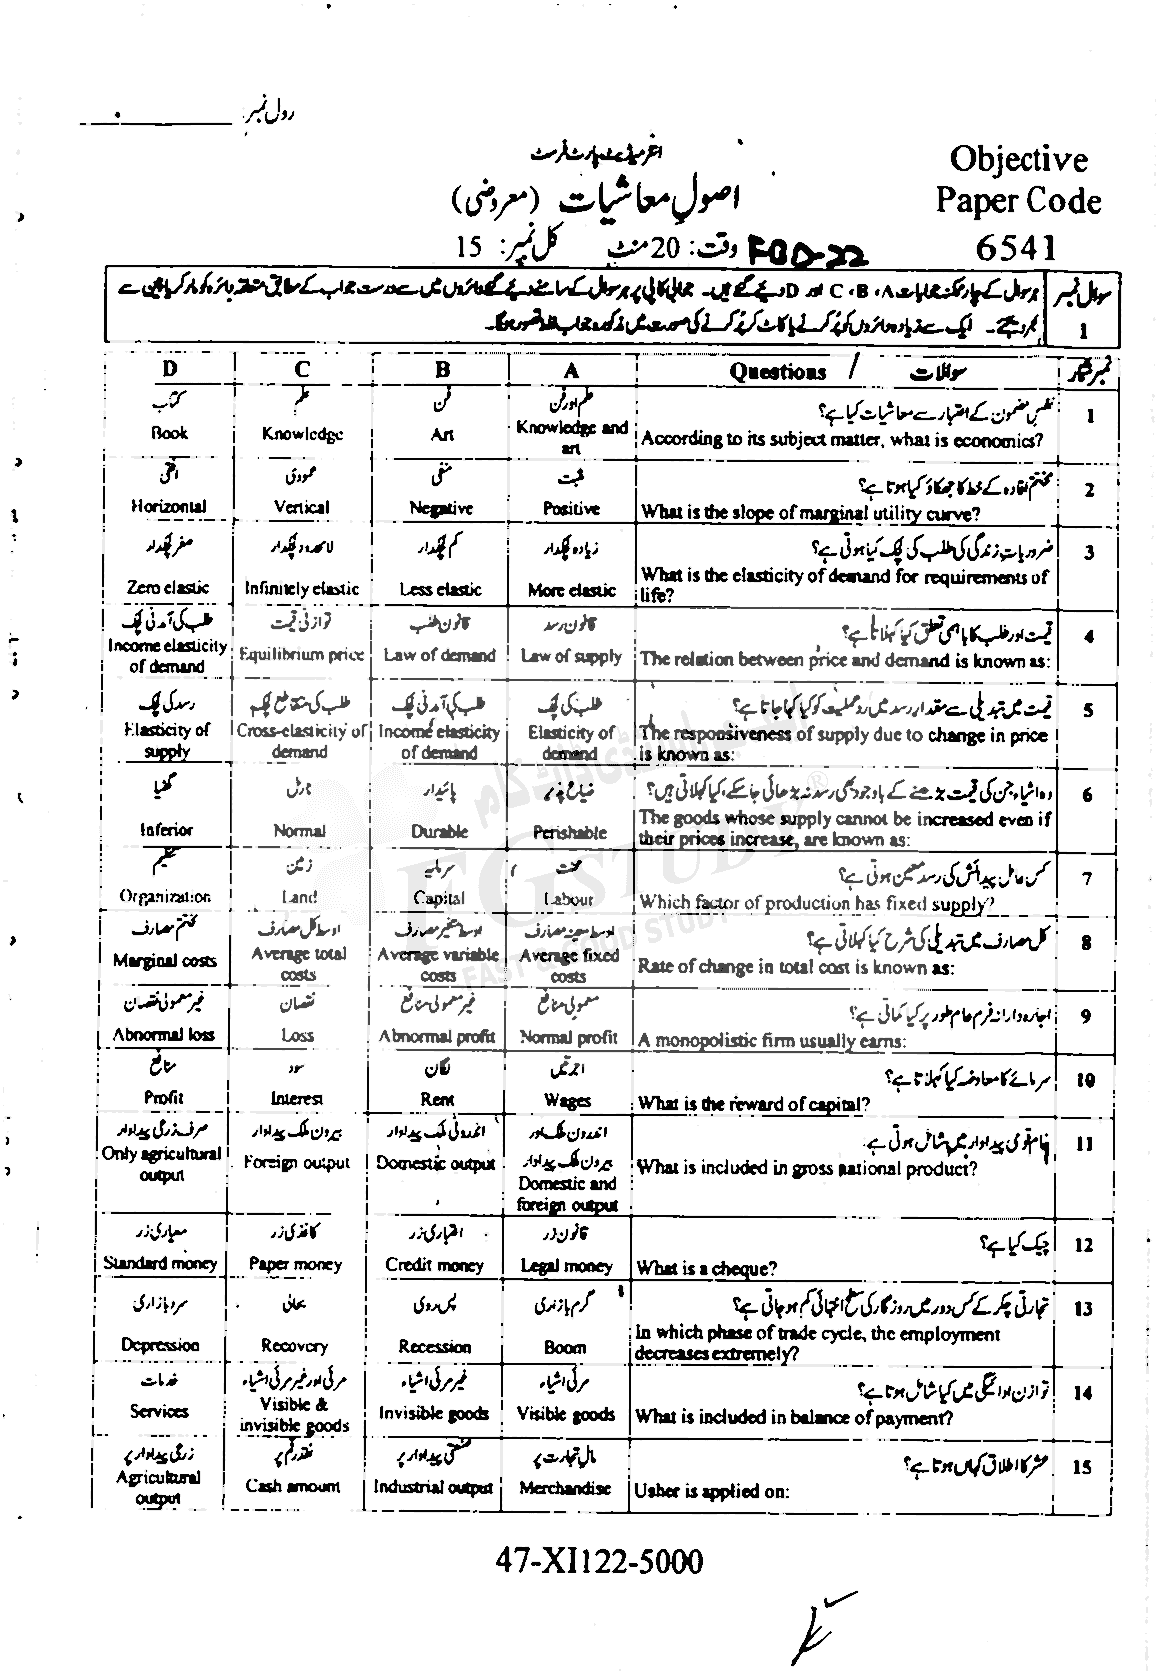 رول نمبر:
انٹرمیڈیٹ پارٹ فرسٹ
Objective
Paper Code
6541
اصولِ معاشیات (معروضی)
وقت: 20 منٹ کل نمبر: 15
FBD-22
سوال نمبر 1
ہر سوال کے چار ممکنہ جوابات A، B، C اور D دیئے گئے ہیں۔ جوابی کاپی پر ہر سوال کے سامنے دیئے گئے دائروں میں سے درست جواب کے مطابق متعلقہ دائرہ کو مارکر یا پین سے
بھر دیجئے۔ ایک سے زیادہ دائروں کو پُر کرنے یا کاٹ کر پُر کرنے کی صورت میں مذکورہ جواب غلط تصور ہو گا۔
نمبر شمار سوالات / Questions A B C D
1 نفسِ مضمون کے اعتبار سے معاشیات کیا ہے؟
According to its subject matter, what is economics?
علم اور فن فن علم کتاب
Knowledge and art Art Knowledge Book
2 مختتم افادہ کے خط کا جھکاؤ کیا ہوتا ہے؟
What is the slope of marginal utility curve?
مثبت منفی عمودی افقی
Positive Negative Vertical Horizontal
3 ضروریاتِ زندگی کی طلب کی لچک کیا ہوتی ہے؟
What is the elasticity of demand for requirements of life?
زیادہ لچکدار کم لچکدار لامحدود لچکدار صفر لچکدار
More elastic Less elastic Infinitely elastic Zero elastic
4 قیمت اور طلب کا باہمی تعلق کیا کہلاتا ہے؟
The relation between price and demand is known as:
قانونِ رسد قانونِ طلب توازنی قیمت طلب کی آمدنی لچک
Law of supply Law of demand Equilibrium price Income elasticity of demand
5 قیمت میں تبدیلی سے مقدار رسد میں ردِ عملیت کو کیا کہا جاتا ہے؟
The responsiveness of supply due to change in price is known as:
طلب کی لچک طلب کی آمدنی لچک طلب کی متقاطع لچک رسد کی لچک
Elasticity of demand Income elasticity of demand Cross-elasticity of demand Elasticity of supply
6 وہ اشیاء جن کی قیمت بڑھنے کے باوجود بھی رسد نہ بڑھائی جا سکے، کیا کہلاتی ہیں؟
The goods whose supply cannot be increased even if their prices increase, are known as:
ضیاع پذیر پائیدار نارمل گھٹیا
Perishable Durable Normal Inferior
7 کس عاملِ پیدائش کی رسد معین ہوتی ہے؟
Which factor of production has fixed supply?
محنت سرمایہ زمین تنظیم
Labour Capital Land Organization
8 کل مصارف میں تبدیلی کی شرح کیا کہلاتی ہے؟
Rate of change in total cost is known as:
اوسط معینہ مصارف اوسط متغیر مصارف اوسط کل مصارف مختتم مصارف
Average fixed costs Average variable costs Average total costs Marginal costs
9 اجارہ دارانہ فرم عام طور پر کیا کماتی ہے؟
A monopolistic firm usually earns:
معمولی منافع غیر معمولی منافع نقصان غیر معمولی نقصان
Normal profit Abnormal profit Loss Abnormal loss
10 سرمائے کا معاوضہ کیا کہلاتا ہے؟
What is the reward of capital?
اجرتیں لگان سود منافع
Wages Rent Interest Profit
11 خام قومی پیداوار میں شامل ہوتی ہے
What is included in gross national product?
اندرون ملک اور بیرون ملک پیداوار اندرونی ملک پیداوار بیرون ملک پیداوار صرف زرعی پیداوار
Domestic and foreign output Domestic output Foreign output Only agricultural output
12 چیک کیا ہے؟
What is a cheque?
قانونی زر اعتباری زر کاغذی زر معیاری زر
Legal money Credit money Paper money Standard money
13 تجارتی چکر کے کس دور میں روزگار کی سطح انتہائی کم ہو جاتی ہے؟
In which phase of trade cycle, the employment decreases extremely?
گرم بازاری پس روی بحالی سرد بازاری
Boom Recession Recovery Depression
14 توازنِ ادائیگی میں کیا شامل ہوتا ہے؟
What is included in balance of payment?
مرئی اشیاء غیر مرئی اشیاء مرئی اور غیر مرئی اشیاء خدمات
Visible goods Invisible goods Visible & invisible goods Services
15 عشر کا اطلاق کہاں ہوتا ہے؟
Usher is applied on:
مالِ تجارت پر صنعتی پیداوار پر نقد رقم پر زرعی پیداوار پر
Merchandise Industrial output Cash amount Agricultural output
47-XI122-5000